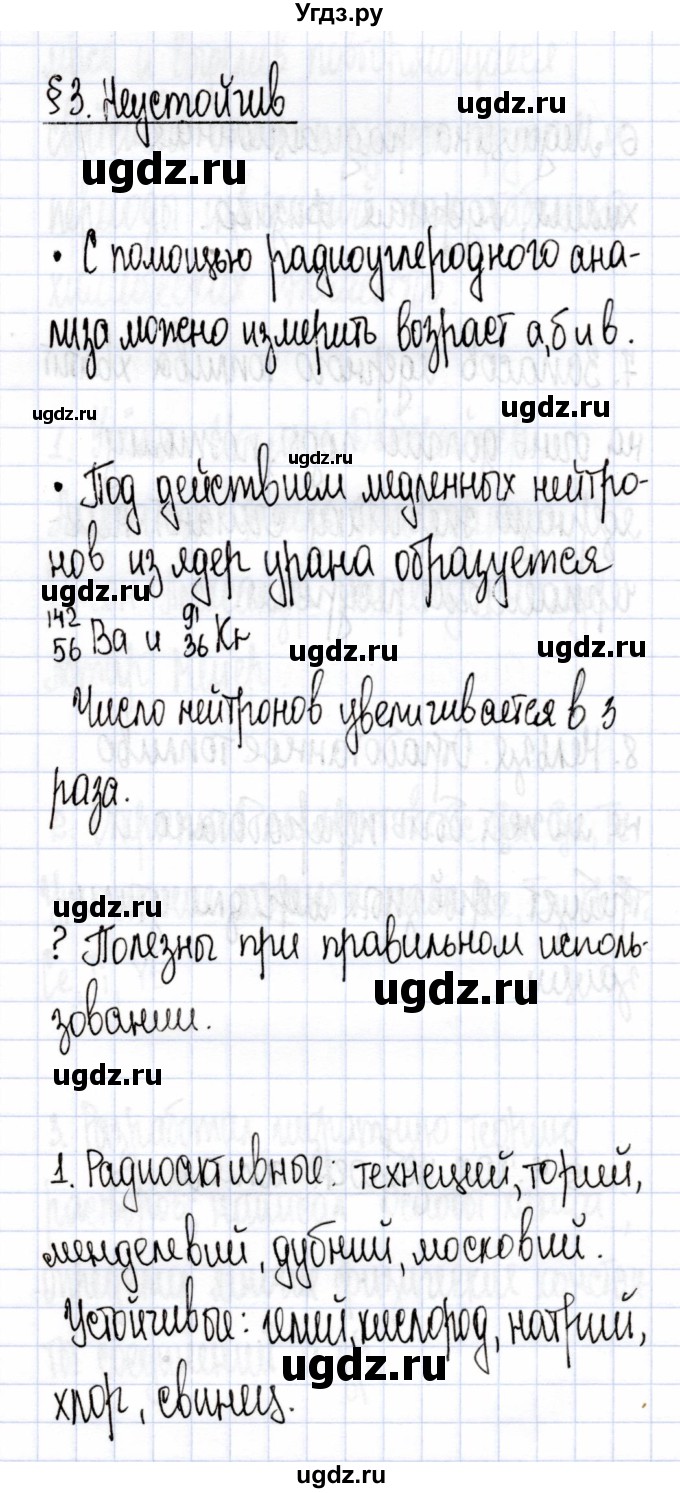 Угдз.ру
§3. Неустойчив
ugdz.ru
ugdz.ru
• С помощью радиоуглеродного ана-
лиза можно измерить возраст а, б и в.
ugdz.ru
ugdz.ru
ugdz.ru
• Под действием медленных нейтро-
нов из ядер урана образуется
ugdz.ru
¹⁴²₅₆Ba и ⁹¹₃₆Kr
ugdz.ru
ugdz.ru
Число нейтронов увеличивается в 3
раза.
ugdz.ru
? Полезны при правильном исполь-
ugdz.ru
зовании.
ugdz.ru
1. Радиоактивные: технеций, торий,
менделевий, дубний, московий.
Устойчивые: гелий, кислород, натрий,
ugdz.ru
хлор, свинец.
ugdz.ru